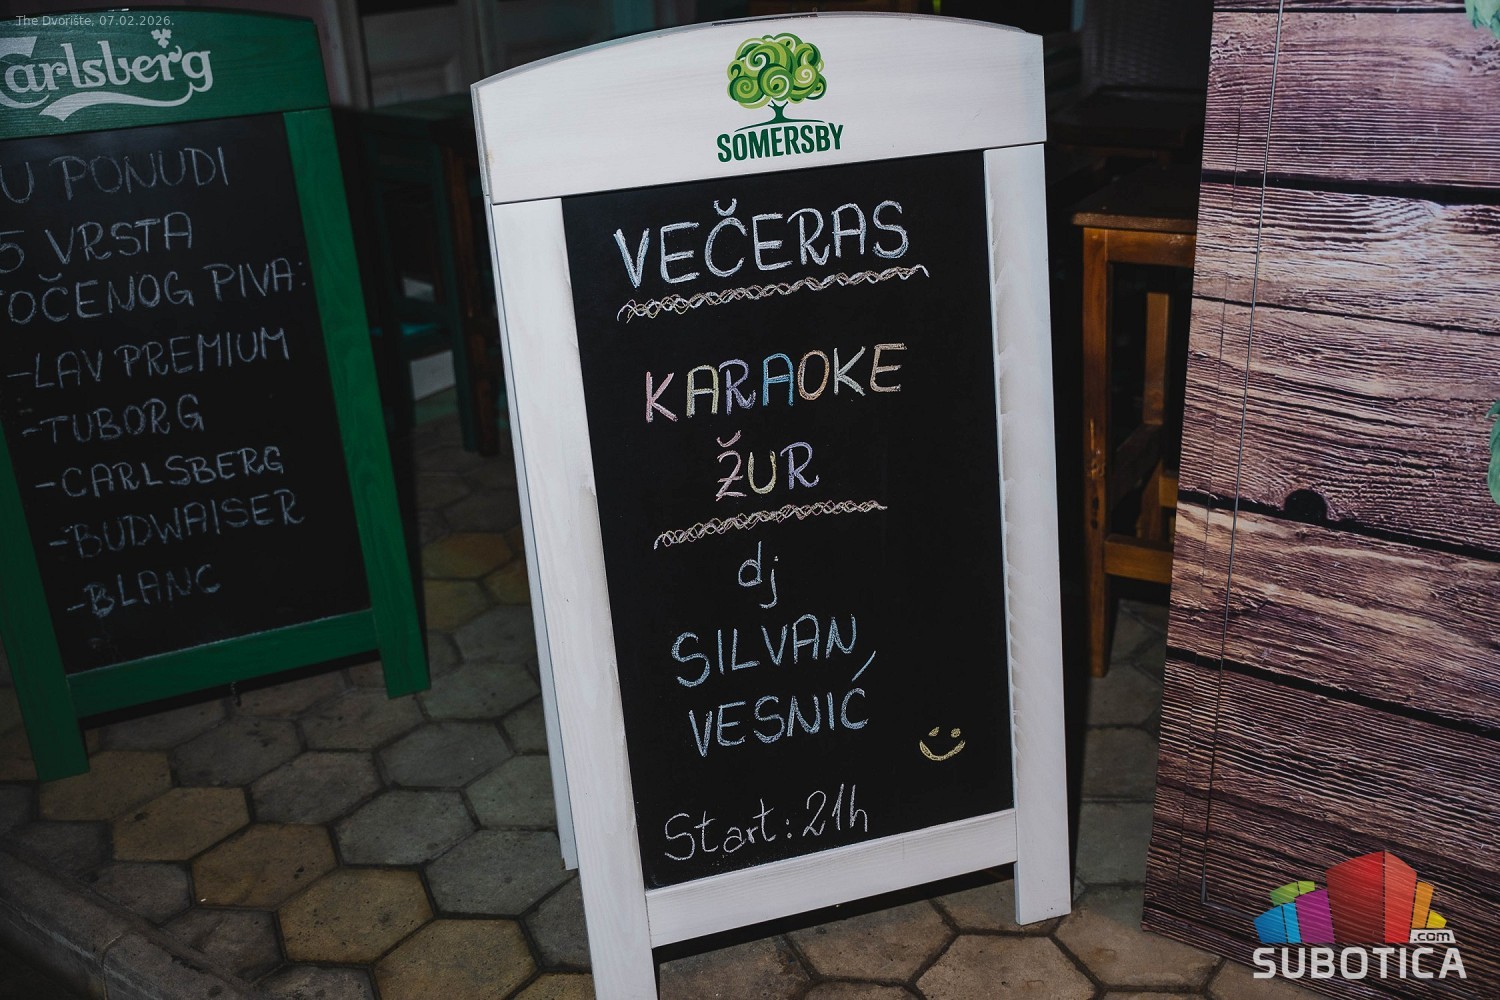 The Dvorište, 07.02.2026.
Carlsberg
U PONUDI
5 VRSTA
TOČENOG PIVA:
-LAV PREMIUM
-TUBORG
-CARLSBERG
-BUDWAISER
-BLANC
SOMERSBY
VEČERAS
KARAOKE
ŽUR
dj
SILVAN
VESNIĆ
Start: 21h
.com
SUBOTICA